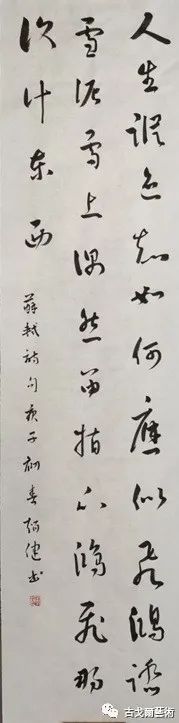 人生知如何應似飛鴻踏
雪泥雪上偶然留指爪鴻飛那
復计东西
蘇軾詩句庚子初春健书
古戈爾藝術